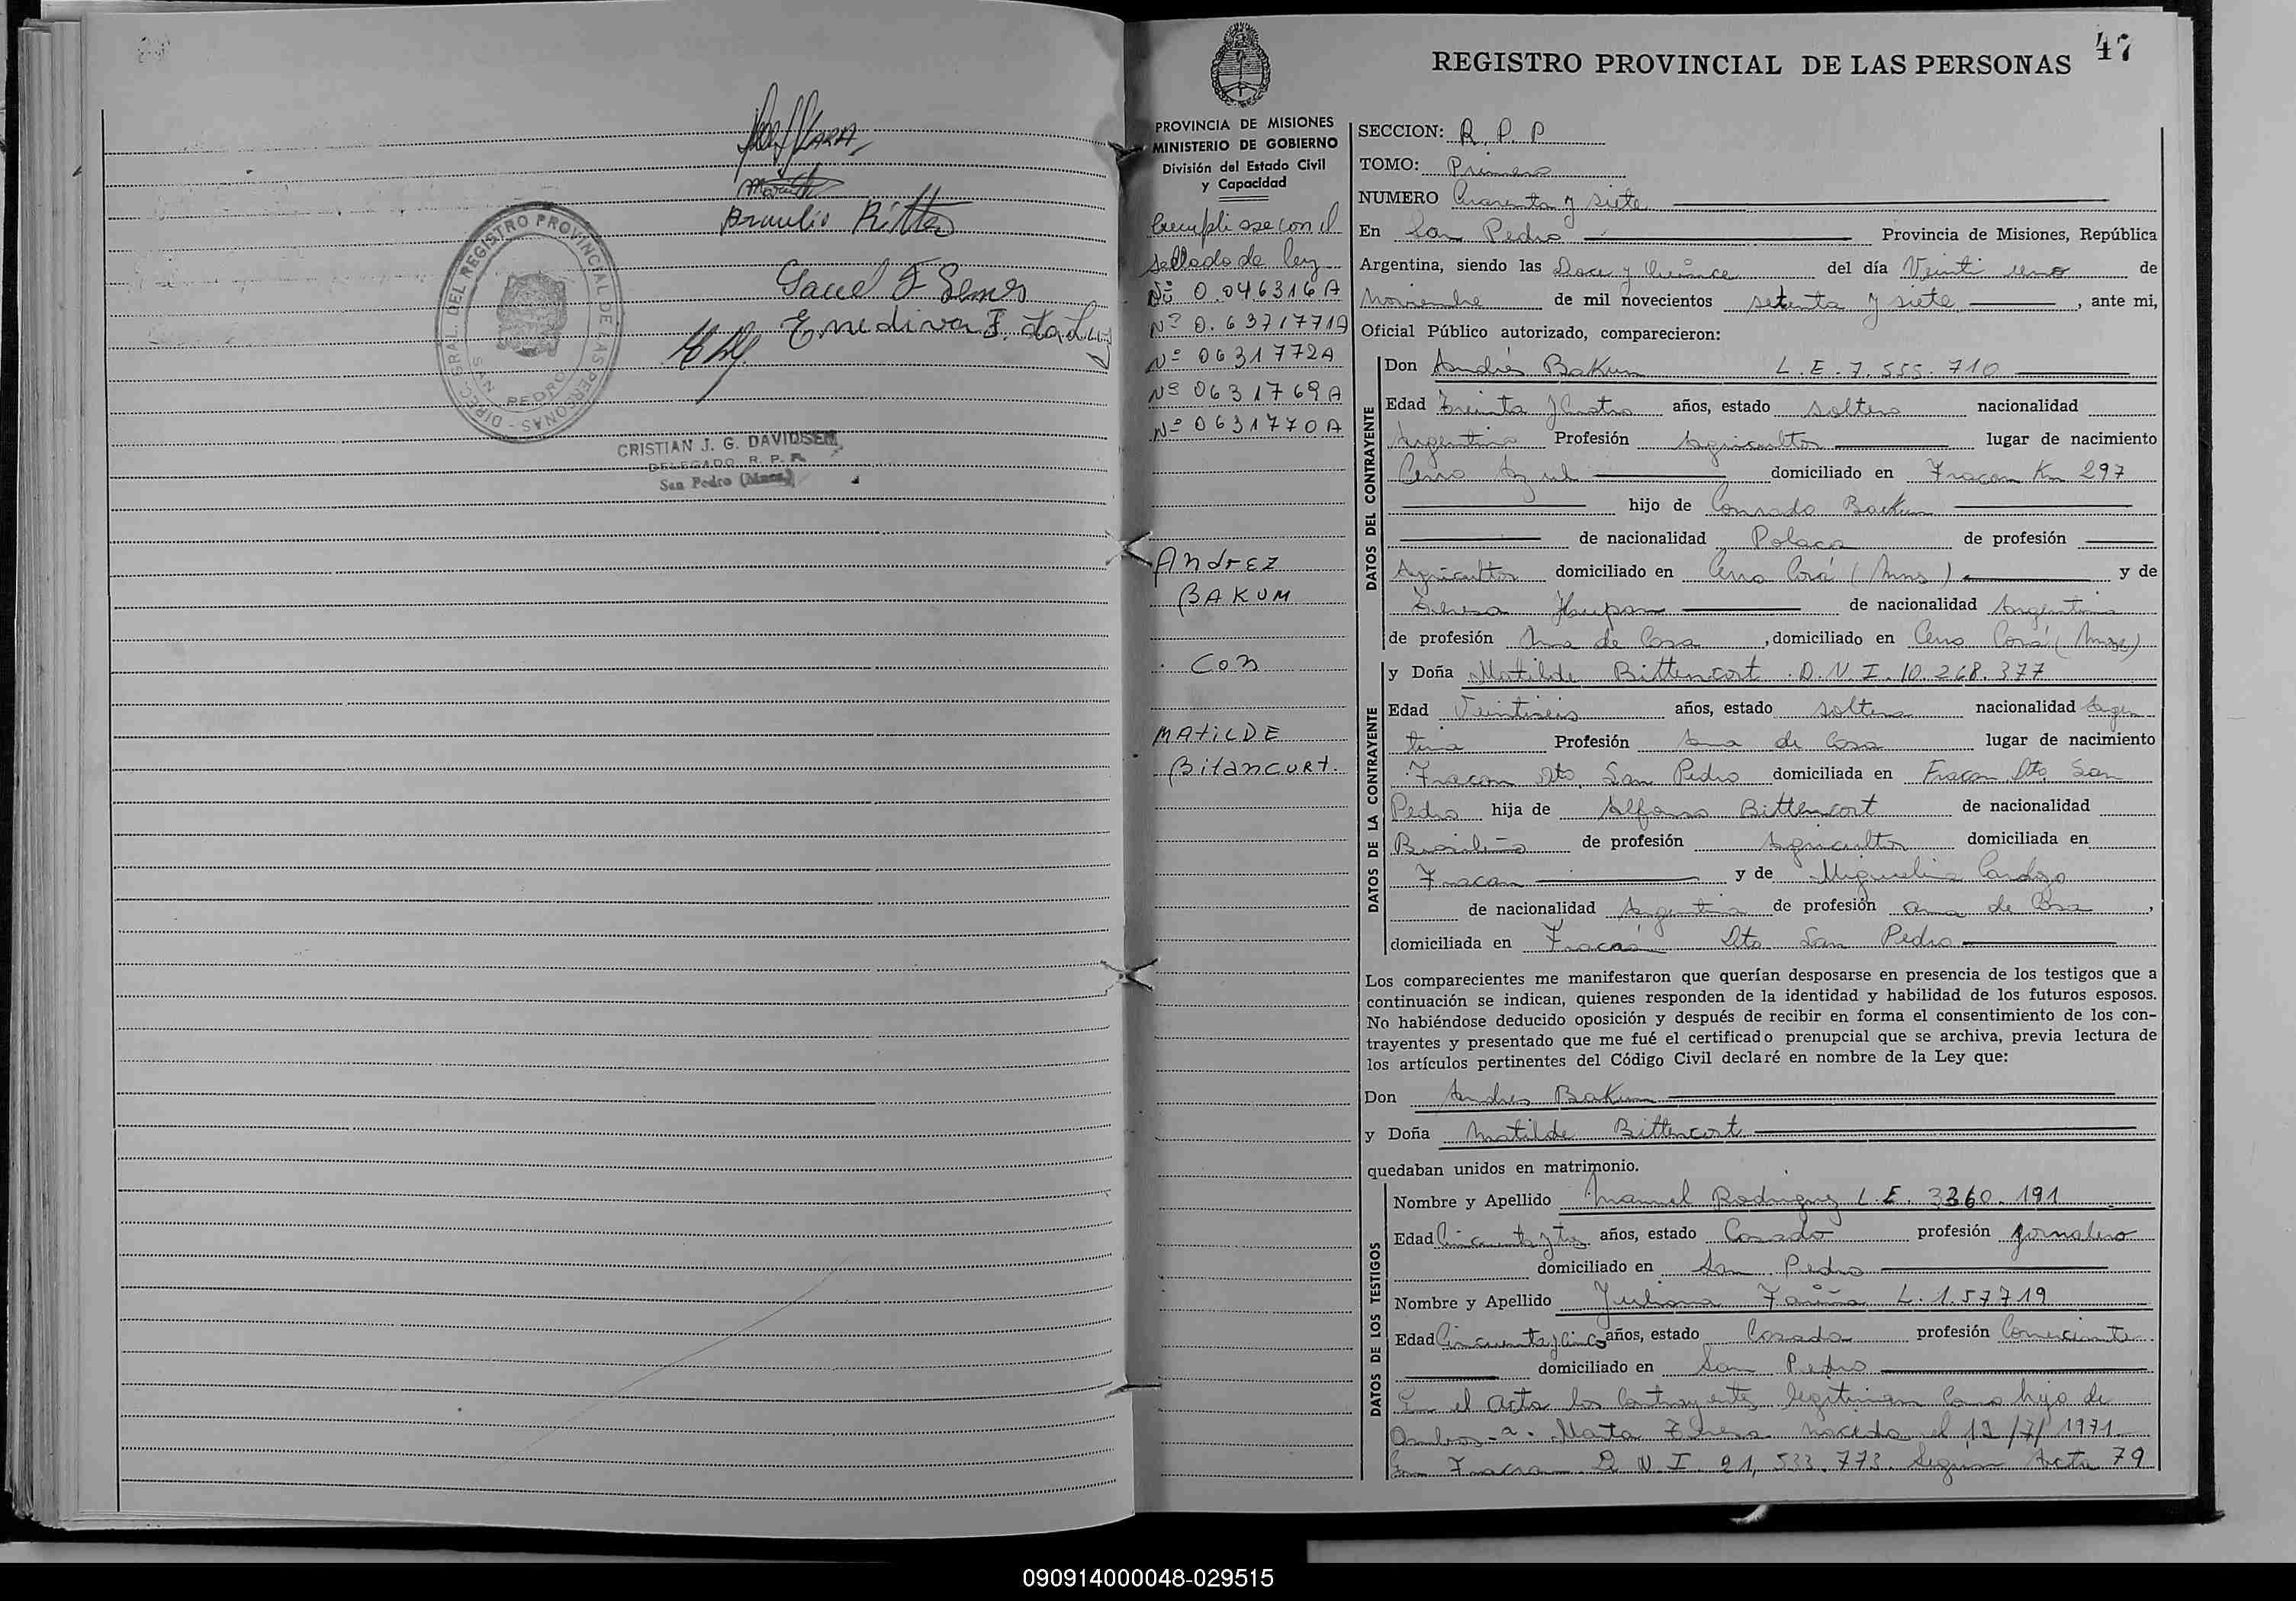 Braulio Ritter
DIREC. GRAL. DEL REGISTRO PROVINCIAL DE LAS PERSONAS -
SAN PEDRO
CRISTIAN J. G. DAVIDSEN
DELEGADO R. P. P.
San Pedro (Mnes.)
47
REGISTRO PROVINCIAL DE LAS PERSONAS
PROVINCIA DE MISIONES
MINISTERIO DE GOBIERNO
División del Estado Civil
y Capacidad
sellado de ley
Nº 0.046316 A
Nº 0631772A
Nº 0631769A
Nº 0631770A
Andrez
BAKUM
Con
MAtiLDE
Bitancurt.
SECCION: R. P. P
TOMO: Primero
NUMERO Cuarenta y siete
En San Pedro Provincia de Misiones, República
Argentina, siendo las Doce y Quince del día Veinti uno de
Noviembre de mil novecientos setenta y siete, ante mi,
Oficial Público autorizado, comparecieron:
DATOS DEL CONTRAYENTE
Don Andrés Bakum L. E. 7.555.710
Edad Treinta y Cuatro años, estado soltero nacionalidad
Argentino Profesión Agricultor lugar de nacimiento
Cerro Azul domiciliado en Fracan Km 297
hijo de Conrado Backum
de nacionalidad Polaca de profesión
Agricultor domiciliado en Cerro Corá (Mnes) y de
de nacionalidad Argentina
de profesión Ama de Casa, domiciliado en Cerro Corá (Mnes)
DATOS DE LA CONTRAYENTE
y Doña Matilde Bittencort D. N. I. 10.268.377
Edad Veintiseis años, estado soltera nacionalidad Argen
tina Profesión Ama de Casa lugar de nacimiento
Fracan Dto San Pedro domiciliada en Fracan Dto San
Pedro hija de Alfonso Bittencort de nacionalidad
Brasileño de profesión Agricultor domiciliada en
Fracan y de Miguelina Cardozo
de nacionalidad Argentina de profesión ama de Casa,
domiciliada en Fracan Dto San Pedro
Los comparecientes me manifestaron que querían desposarse en presencia de los testigos que a
continuación se indican, quienes responden de la identidad y habilidad de los futuros esposos.
No habiéndose deducido oposición y después de recibir en forma el consentimiento de los con-
trayentes y presentado que me fué el certificado prenupcial que se archiva, previa lectura de
los artículos pertinentes del Código Civil declaré en nombre de la Ley que:
Don Andres Bakum
y Doña Matilde Bittencort
quedaban unidos en matrimonio.
DATOS DE LOS TESTIGOS
Nombre y Apellido Manuel Rodriguez L. E. 3360.191
Edad Cincuenta y tres años, estado Casado profesión Jornalero
domiciliado en San Pedro
Nombre y Apellido Juliana Fariña L. 1.57719
Edad Cincuenta y Cinco años, estado Casada profesión Comerciante
domiciliado en San Pedro
En el Acto los Contrayentes legitiman Como hijo de
Ambos a. Marta Teresa nacida el 12/7/1971
En Fracan D N. I. 21,533.773. Segun Acta 79
090914000048-029515